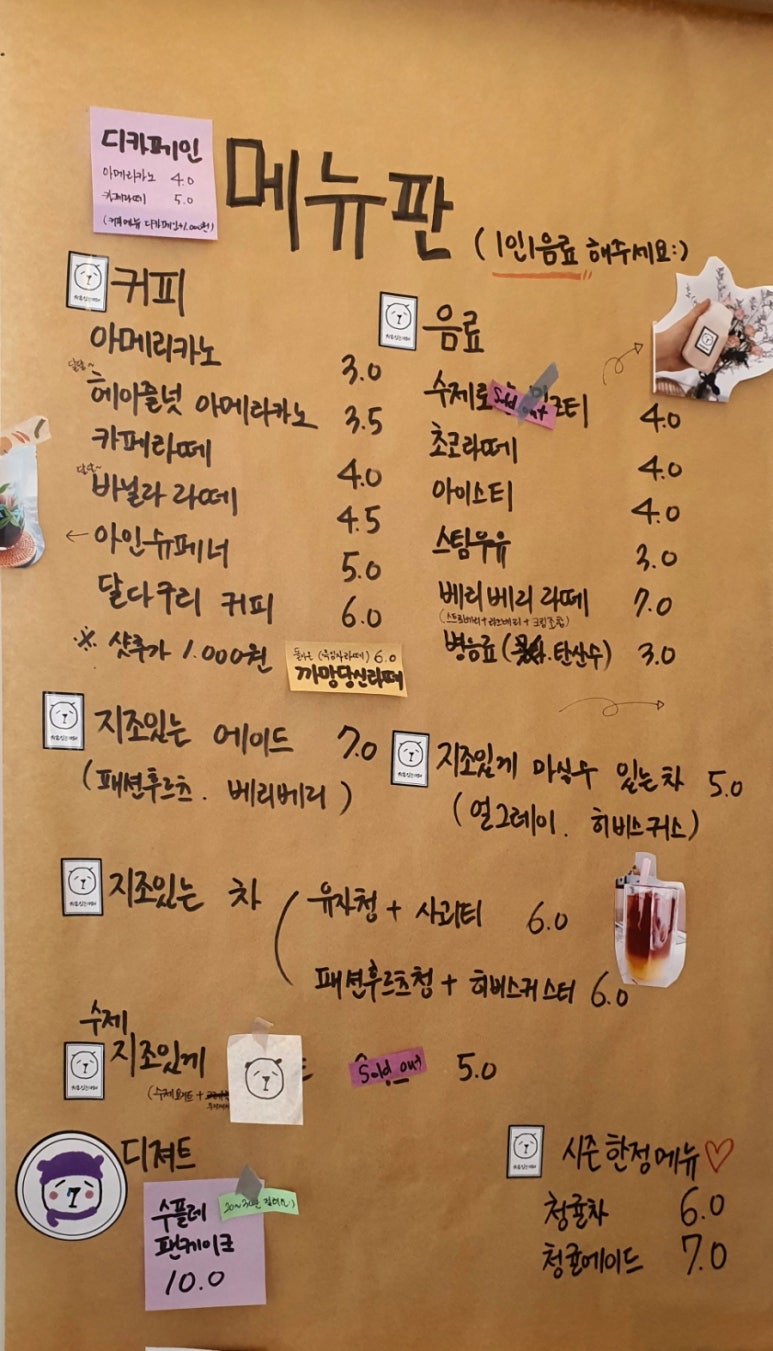 디카페인
아메리카노 4.0
카페라떼 5.0
(커피메뉴 디카페인+1.000원)
메뉴판
(1인1음료 해주세요:)
커피
아메리카노 3.0
달달~
헤이즐넛 아메리카노 3.5
카페라떼 4.0
달달~
바닐라 라떼 4.5
← 아인슈페너 5.0
달다구리 커피 6.0
※ 샷추가 1.000원
6.0
까망당신라떼
음료
수제 Sold out 크티 4.0
초코라떼 4.0
아이스티 4.0
스팀우유 3.0
베리베리 라떼 7.0
병음료 (탄산수) 3.0
지조있는 에이드 7.0
(패션후르츠. 베리베리)
지조있게 마실수 있는 차 5.0
(얼그레이. 히비스커스)
지조있는 차
유자청 + 사과티 6.0
패션후르츠청 + 히비스커스티 6.0
수제
지조있게 Sold out 5.0
디져트
수플레
팬케이크
10.0
시즌 한정 메뉴♡
청귤차 6.0
청귤에이드 7.0